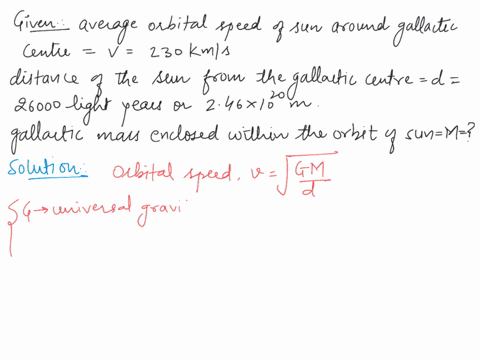 Given: average orbital speed of sun around gallactic
centre = v = 230 km/s
distance of the sun from the gallactic centre = d =
26000 light years or 2.46×10²⁰ m.
gallactic mass enclosed within the orbit of sun = M = ?
Solution: Orbital speed, v = √(GM/d)
{ G → universal gravi